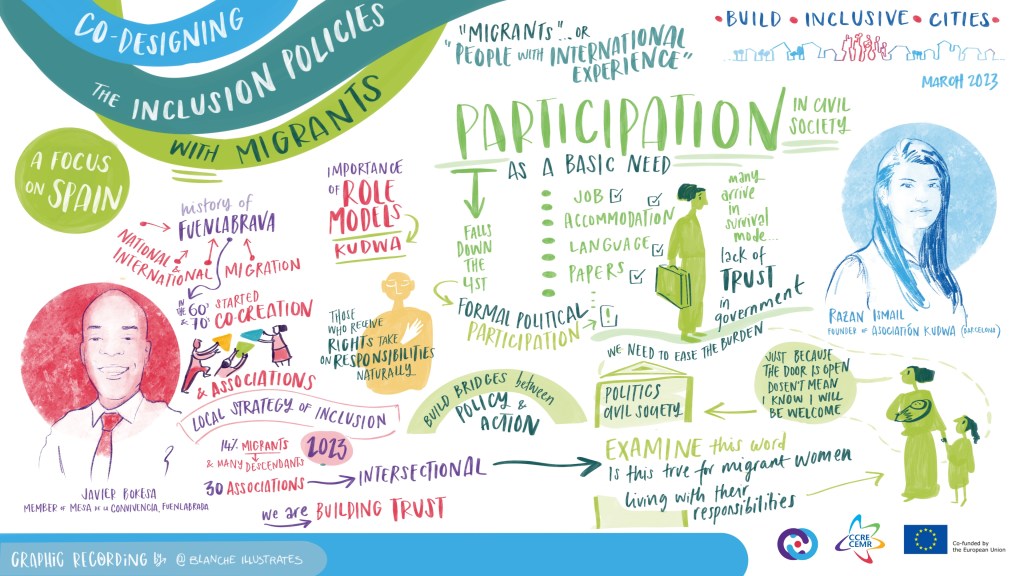 CO-DESIGNING
THE INCLUSION POLICIES
WITH MIGRANTS
"MIGRANTS"... OR
"PEOPLE WITH INTERNATIONAL
EXPERIENCE"
• BUILD • INCLUSIVE • CITIES •
MARCH 2023
A FOCUS
ON SPAIN
history of
FUENLABRAVA
NATIONAL &
INTERNATIONAL MIGRATION
IN THE 60'
& 70'
STARTED
CO-CREATION
& ASSOCIATIONS
IMPORTANCE
OF ROLE
MODELS
KUDWA
THOSE
WHO RECEIVE
RIGHTS TAKE
ON RESPONSIBILITIES
NATURALLY
JAVIER BOKESA
MEMBER OF MESA DE LA CONVIVENCIA, FUENLABRADA
LOCAL STRATEGY OF INCLUSION
14% MIGRANTS
& MANY DESCENDANTS
2023
30 ASSOCIATIONS
INTERSECTIONAL
we are BUILDING TRUST
PARTICIPATION
IN CIVIL
SOCIETY
AS A BASIC NEED
FALLS
DOWN
THE
LIST
JOB
ACCOMMODATION
LANGUAGE
PAPERS
FORMAL POLITICAL
PARTICIPATION
!
many
arrive
in
survival
mode...
lack of
TRUST
in
government
WE NEED TO EASE THE BURDEN
RAZAN ISMAIL
FOUNDER OF ASOCIACIÓN KUDWA (BARCELONA)
BUILD BRIDGES between
POLICY &
ACTION
POLITICS
CIVIL SOCIETY
JUST BECAUSE
THE DOOR IS OPEN
DOSEN'T MEAN
I KNOW I WILL
BE WELCOME
EXAMINE this word
Is this true for migrant women
living with their
responsibilities
GRAPHIC RECORDING By @BLANCHE ILLUSTRATES
CCRE
CEMR
Co-funded by
the European Union